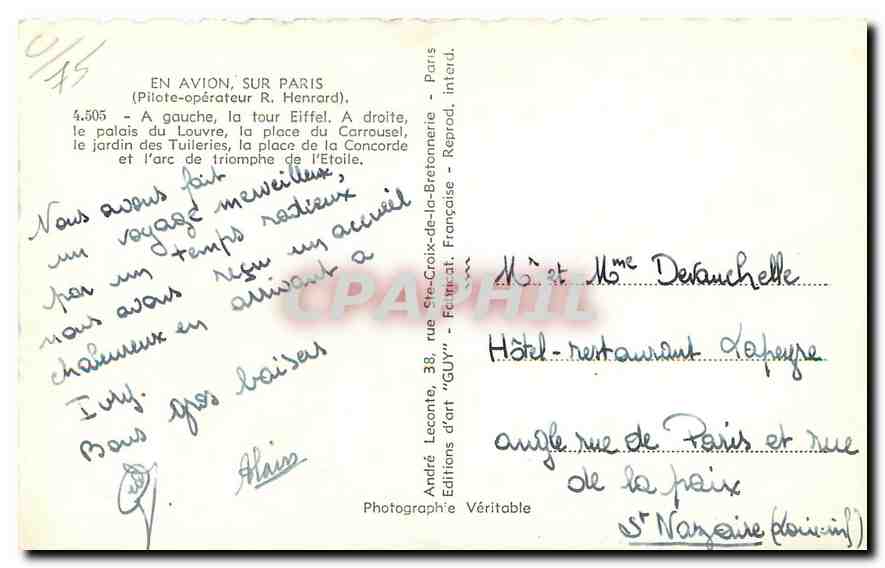 U/75
EN AVION, SUR PARIS
(Pilote-opérateur R. Henrard).
4.505 - A gauche, la tour Eiffel. A droite,
le palais du Louvre, la place du Carrousel,
le jardin des Tuileries, la place de la Concorde
et l'arc de triomphe de l'Etoile.
Nous avons fait
un voyage merveilleux,
par un temps radieux
nous avons reçu un accueil
chaleureux en arrivant à
Ivry.
Bons gros baisers
Alain
André Leconte, 38, rue Ste-Croix-de-la-Bretonnerie - Paris
Editions d'art "GUY" - Fabricat. Française - Reprod. interd.
CPAPHIL
Mr et Mme Devauchelle
Hôtel-restaurant Lapeyre
angle rue de Paris et rue
de la paix
St Nazaire (Loire-inf)
Photographie Véritable